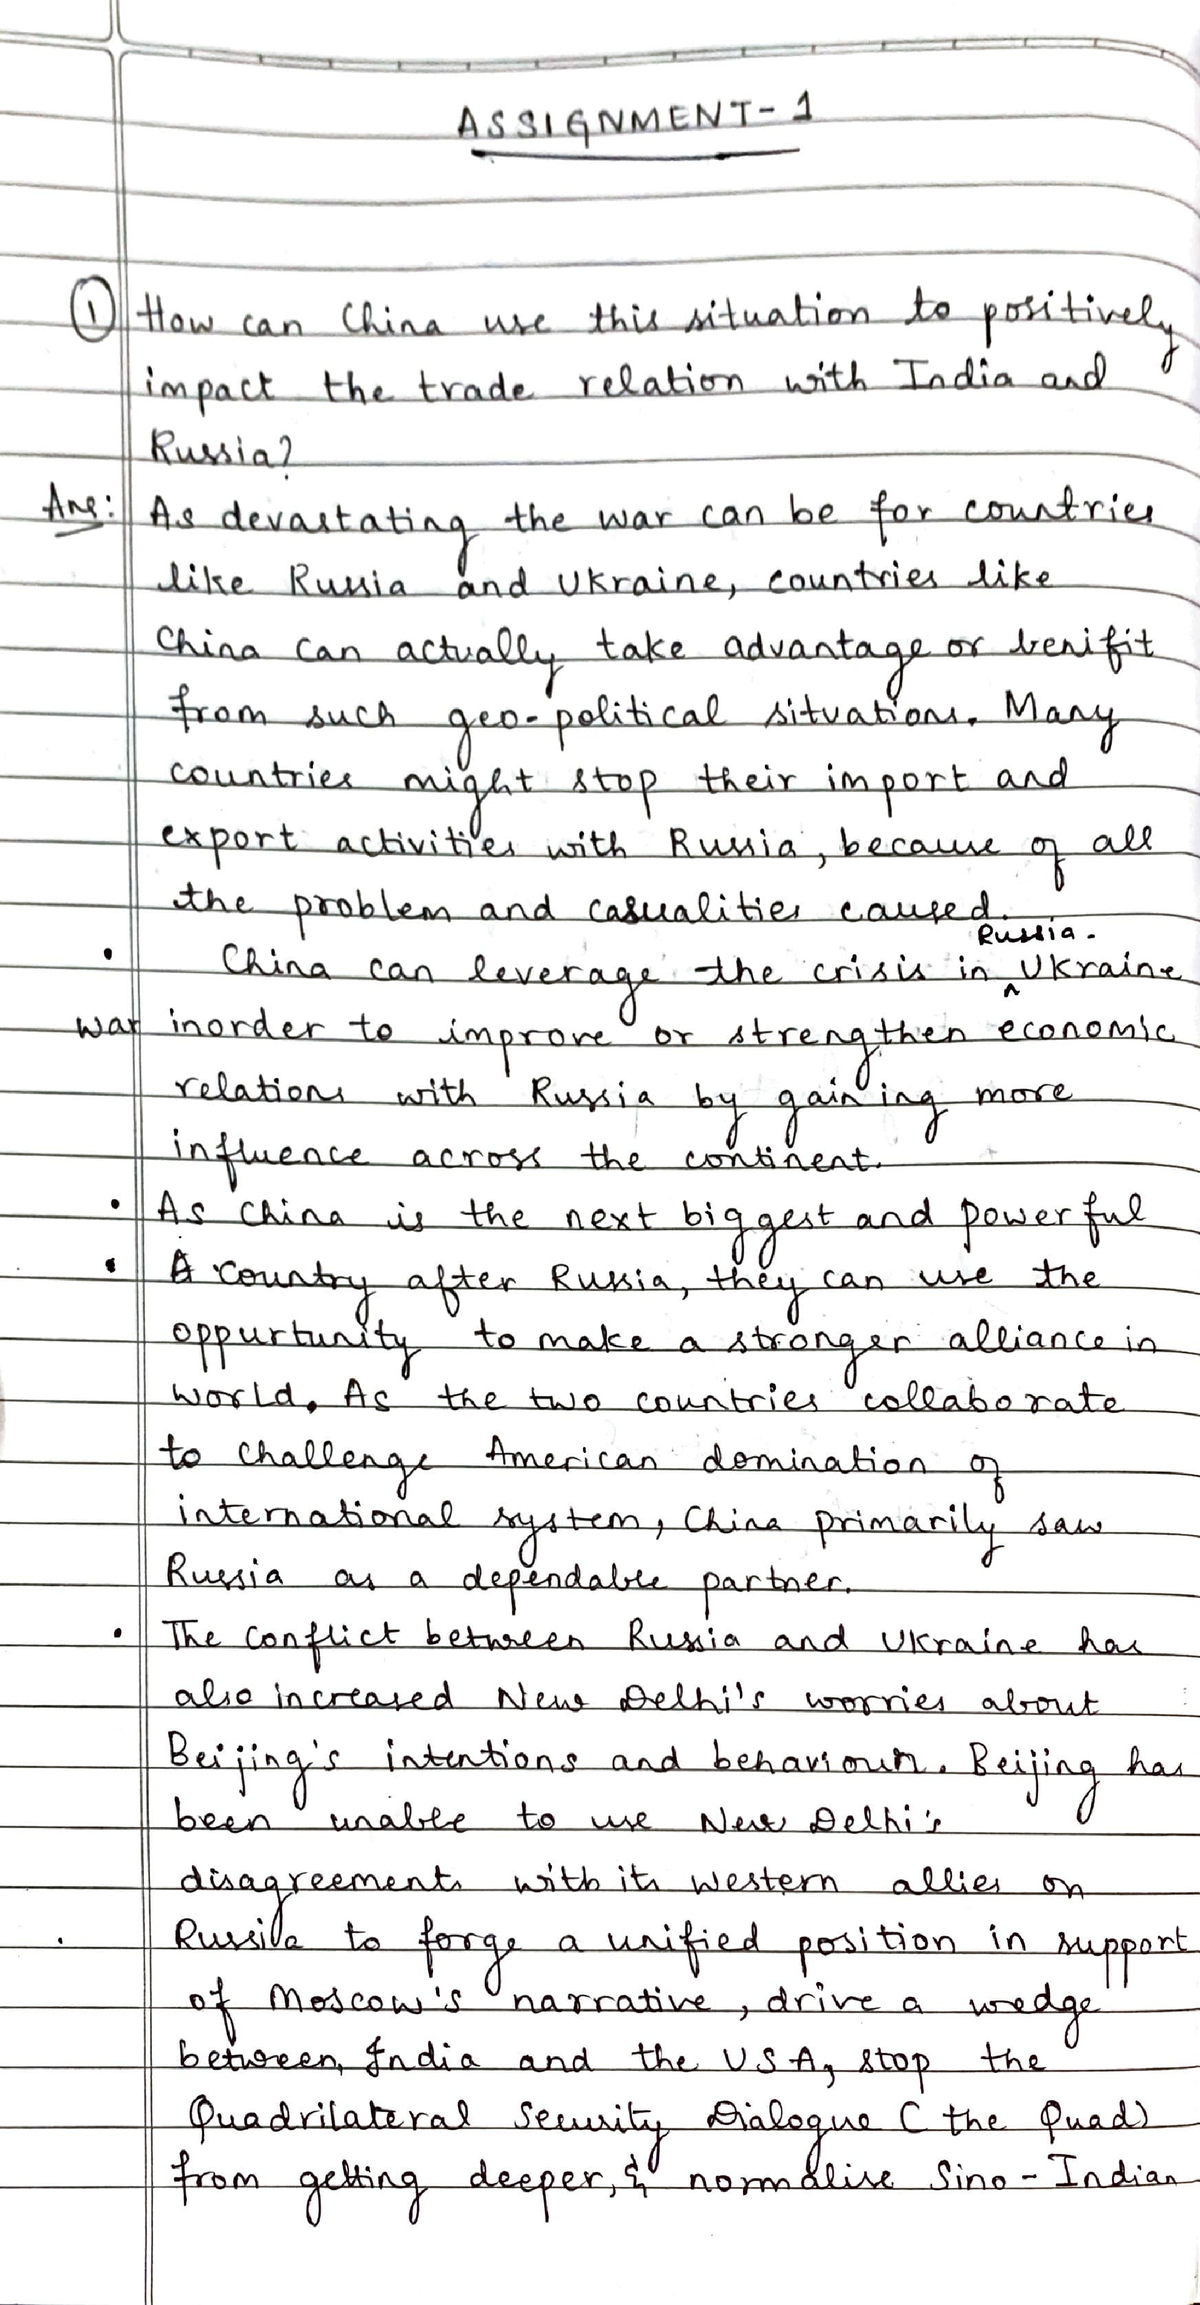 ASSIGNMENT-1
① How can China use this situation to positively
impact the trade relation with India and
Russia?
Ans: As devastating the war can be for countries
like Russia and Ukraine, countries like
China can actually take advantage or benifit
from such geo-political situations. Many
countries might stop their import and
export activities with Russia, because of all
the problem and casualities caused.
Russia-
• China can leverage the crisis in ^ Ukraine
war inorder to improve or strengthen economic
relations with Russia by gaining more
influence across the continent.
• As China is the next biggest and powerful
• country after Russia, they can use the
oppurtunity to make a stronger alliance in
world. As the two countries collaborate
to challenge American domination of
international system, China primarily saw
Russia as a dependable partner.
• The conflict between Russia and Ukraine has
also increased New Delhi's worries about
Beijing's intentions and behaviour. Beijing has
been unable to use New Delhi's
disagreements with its western allies on
Russia to forge a unified position in support
of Moscow's narrative, drive a wedge
between, India and the USA, stop the
Quadrilateral Security Dialogue (the Quad)
from getting deeper, & normalise Sino-Indian